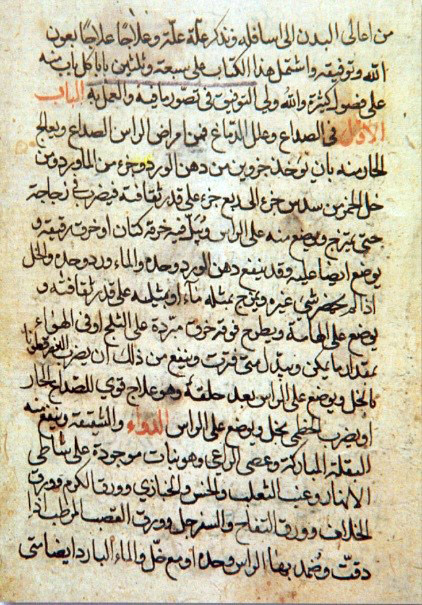 من اعالى البدن الى اسافله ونذكر علة علة وعلاجًا علاجًا بعون
الله وتوفيقه واشتمل هذا الكتاب على سبعة وثلثين بابا كل باب منه
على فصول كثيرة والله ولى التوفيق فى تصور ما فيه والعمل به الباب
الاول فى الصداع وعلل الدماغ فمن امراض الراس الصداع ويعالج
الحار منه بان يؤخذ جزوين من دهن الورد وجزء من الماورد ومن
خل الخمر سدس جزء الى ربع جزء على قدر ثقافته فيضرب فى زجاجة
حتى يمتزج ويوضع منه على الراس وتبل فيه خرقة كتان او خرق رقيقة و
يوضع ايضا عليه وقد ينفع دهن الورد وحده والماء ورد وحده والخل
اذا لم يحضر شى غيره ويمزج بمثله مآء او بمثليه على قدر ثقافته و
يوضع على الهامة ويطرح فوقه خرق مبردة على الثلج او فى الهواء
بمقدار ما يكن ويبدل متى فترت وينفع من ذلك ان يضرب
بالخل ويوضع على الراس بعد حلقه وهو علاج قوي للصداع الحار
او يضرب الخطمى بخل ويوضع على الراس الدواء والشقيقة وينفع منه
البقلة المباركة وعصى الراعى وهو نبات موجودة على شاطى
الانهار وعنب الثعلب والخس والخبازى وورق الكرم وورق
الخلاف وورق التفاح والسفرجل وورق القصب المرطب اذا
دقت وضمد بها الراس وحده او مع خل والماء البارد ايضا متى